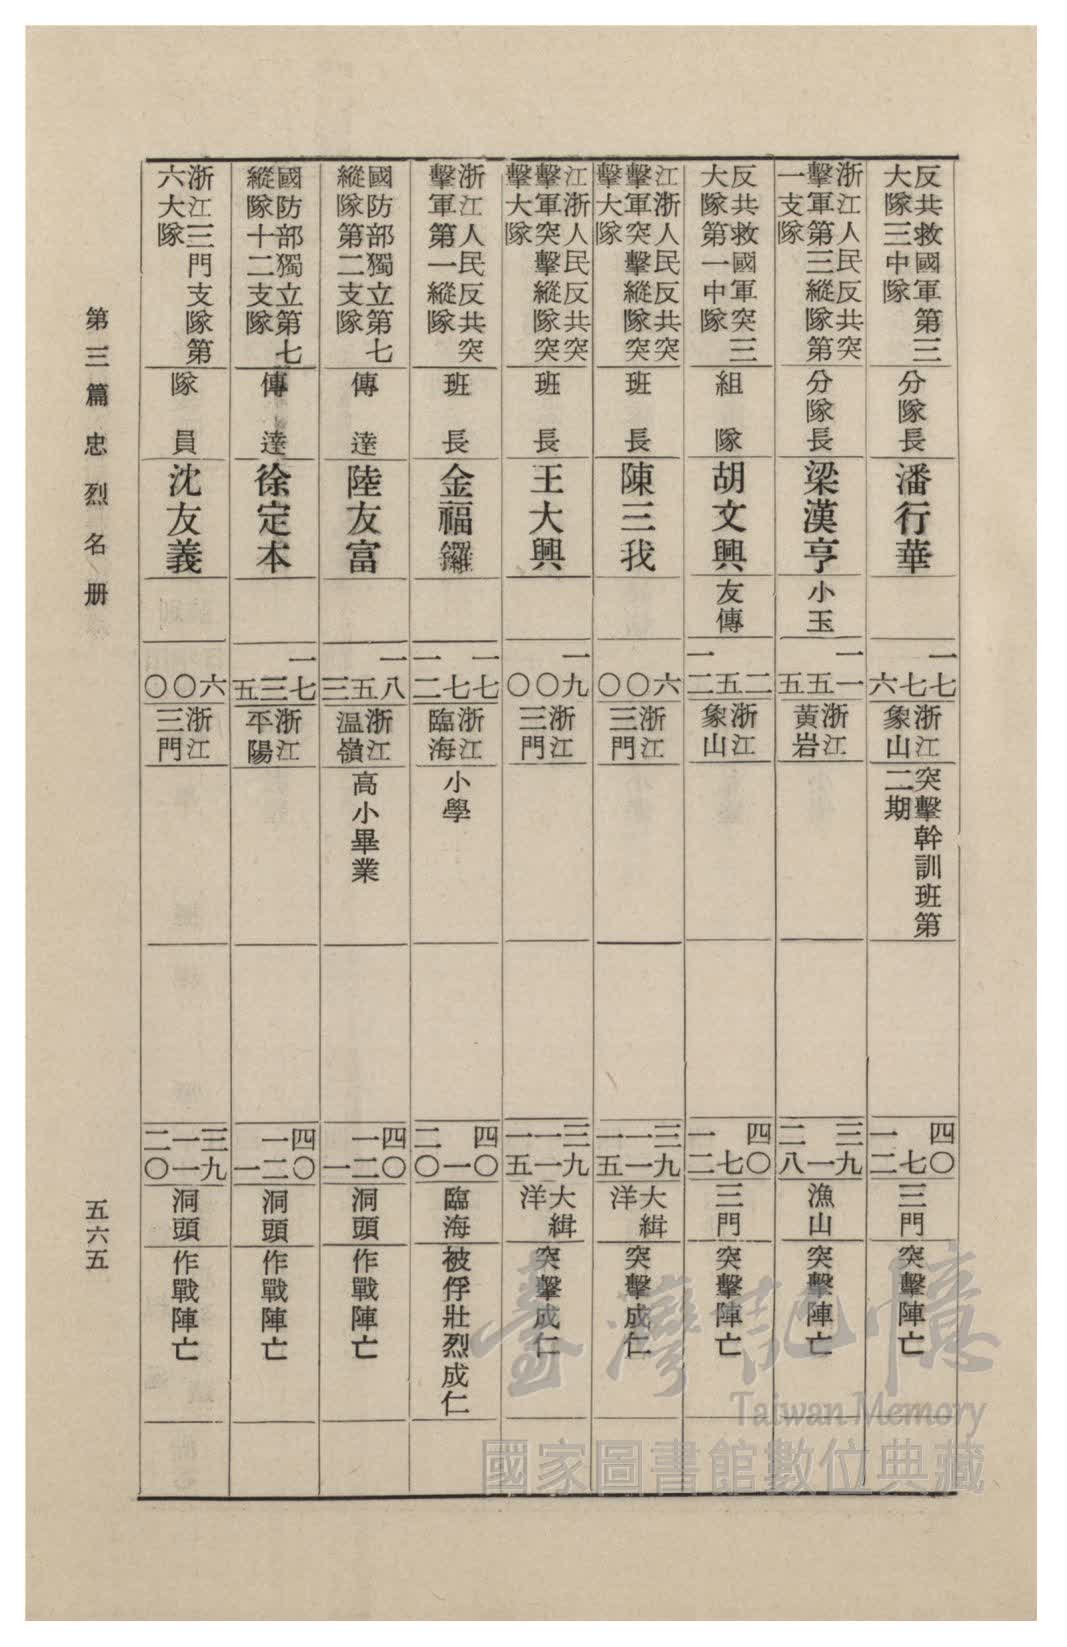 反共救國軍第三
大隊三中隊
分隊長
潘行華
一七
七
六
浙江
象山
突擊幹訓班第
二期
四〇
七
一二
三門
突擊陣亡
浙江人民反共突
擊軍第三縱隊第
一支隊
分隊長
梁漢亨
小玉
一一
五
五
浙江
黃岩
三九
一
二八
漁山
突擊陣亡
反共救國軍突三
大隊第一中隊
組隊
胡文興
友傳
二
五
一二
浙江
象山
四〇
七
一二
三門
突擊陣亡
江浙人民反共突
擊軍突擊縱隊突
擊大隊
班長
陳三我
六
〇
〇
浙江
三門
三九
一一
一五
大緝
洋
突擊成仁
江浙人民反共突
擊軍突擊縱隊突
擊大隊
班長
王大興
一九
〇
〇
浙江
三門
三九
一一
一五
大緝
洋
突擊成仁
浙江人民反共突
擊軍第一縱隊
班長
金福鑼
一七
七
一二
浙江
臨海
小學
四〇
一
二〇
臨海
被俘壯烈成仁
國防部獨立第七
縱隊第二支隊
傳達
陸友富
一八
五
三
浙江
溫嶺
高小畢業
四〇
一二
一
洞頭
作戰陣亡
國防部獨立第七
縱隊十二支隊
傳達
徐定本
一七
三
五
浙江
平陽
四〇
一二
一
洞頭
作戰陣亡
浙江三門支隊第
六大隊
隊員
沈友義
六
〇
〇
浙江
三門
三九
一一
二〇
洞頭
作戰陣亡
第三篇 忠烈名册
五六五
臺灣記憶
Taiwan Memory
國家圖書館數位典藏